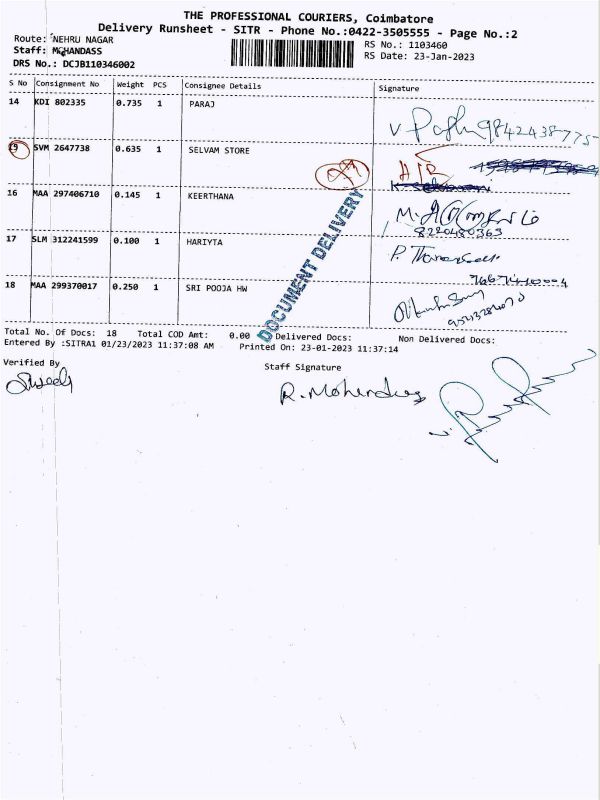 THE PROFESSIONAL COURIERS, Coimbatore
Delivery Runsheet - SITR - Phone No.:0422-3505555 - Page No.:2
Route: NEHRU NAGAR
RS No.: 1103460
Staff: MOHANDASS
RS Date: 23-Jan-2023
DRS No.: DCJB110346002
S No Consignment No Weight PCS Consignee Details Signature
14 KDI 802335 0.735 1 PARAJ
9842438775
SVM 2647738 0.635 1 SELVAM STORE
16 MAA 297406710 0.145 1 KEERTHANA
8220480363
17 SLM 312241599 0.100 1 HARIYTA
18 MAA 299370017 0.250 1 SRI POOJA HW
DOCUMENT DELIVERY
Total No. Of Docs: 18 Total COD Amt: 0.00 Delivered Docs: Non Delivered Docs:
Entered By :SITRA1 01/23/2023 11:37:08 AM Printed On: 23-01-2023 11:37:14
Verified By
Staff Signature